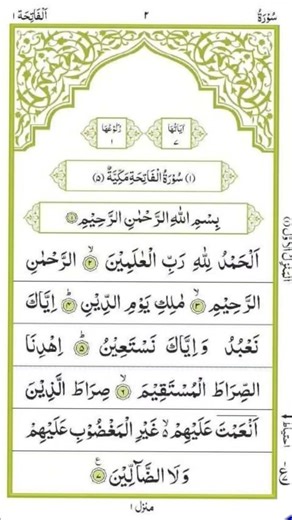 سُوْرَةُ ٢ اَلْفَاتِحَة ١
اٰيَاتُهَا ٧ رُكُوْعُهَا ١
(١) سُوْرَةُ الْفَاتِحَةِ مَكِّيَّةٌ (٥)
بِسْمِ اللّٰهِ الرَّحْمٰنِ الرَّحِيْمِ ۝١
اَلْحَمْدُ لِلّٰهِ رَبِّ الْعٰلَمِيْنَ ۝٢ۙ الرَّحْمٰنِ
الرَّحِيْمِ ۝٣ۙ مٰلِكِ يَوْمِ الدِّيْنِ ۝٤ؕ اِيَّاكَ
نَعْبُدُ وَ اِيَّاكَ نَسْتَعِيْنُ ۝٥ؕ اِهْدِنَا
الصِّرَاطَ الْمُسْتَقِيْمَ ۝٦ۙ صِرَاطَ الَّذِيْنَ
اَنْعَمْتَ عَلَيْهِمْ ۙ۬ غَيْرِ الْمَغْضُوْبِ عَلَيْهِمْ
وَلَا الضَّآلِّيْنَ ۝٧ع
منزل ١